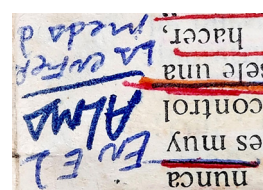 nunca
es muy
control
sele una
hacer,
En El
ALMA
LA enFeR
meda d